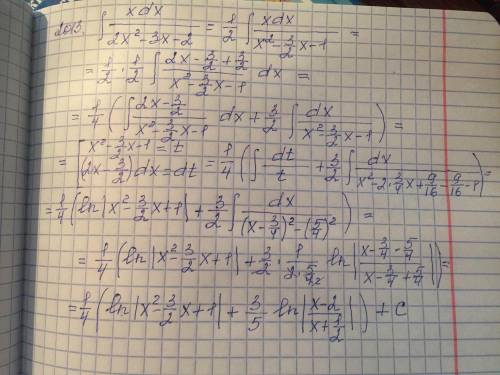 2013. ∫ xdx/(2x²-3x-2) = 1/2 ∫ xdx/(x²-3/2x-1) =
= 1/2 · 1/2 ∫ (2x-3/2+3/2)/(x²-3/2x-1) dx =
= 1/4 (∫ (2x-3/2)/(x²-3/2x-1) dx + 3/2 ∫ dx/(x²-3/2x-1)) =
= [x²-3/2x-1=t (2x-3/2)dx=dt = 1/4 (∫ dt/t + 3/2 ∫ dx/(x²-2·3/4x+9/16-9/16-1)) =
= 1/4 (ln|x²-3/2x+1| + 3/2 ∫ dx/((x-3/4)²-(5/4)²)) =
= 1/4 (ln|x²-3/2x+1| + 3/2 · 1/(2·5/4) ln|(x-3/4-5/4)/(x-3/4+5/4)|) =
= 1/4 (ln|x²-3/2x+1| + 3/5 ln|(x-2)/(x+1/2)|) + C